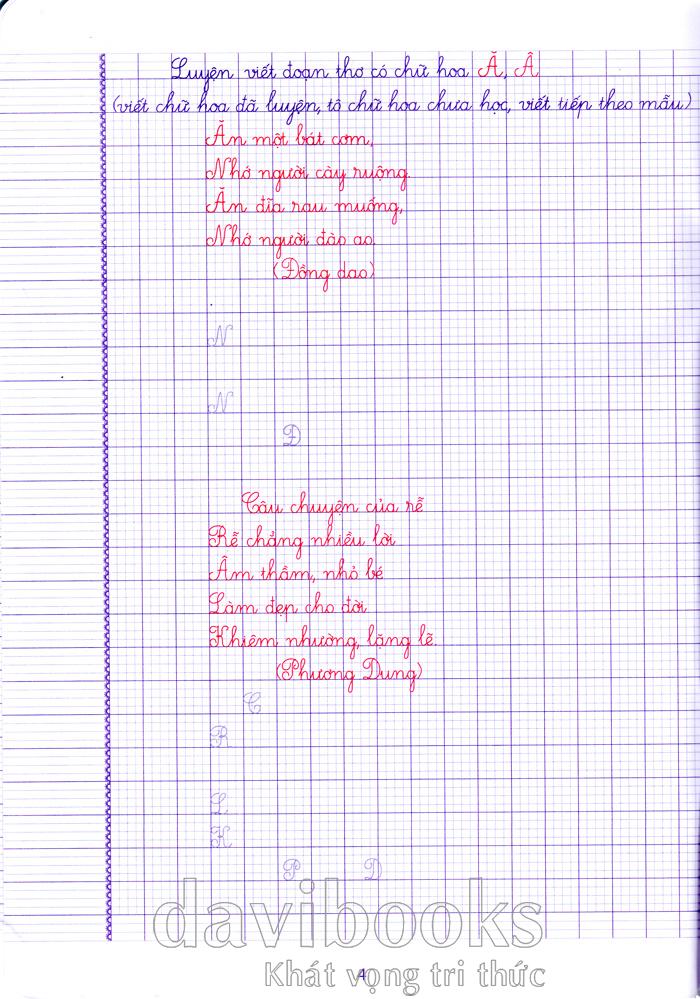 Luyện viết đoạn thơ có chữ hoa Ă, Â
(viết chữ hoa đã luyện, tô chữ hoa chưa học, viết tiếp theo mẫu)
Ăn một bát cơm,
Nhớ người cày ruộng.
Ăn đĩa rau muống,
Nhớ người đào ao.
(Đồng dao)
N
N
Đ
Câu chuyện của rễ
Rễ chẳng nhiều lời
Âm thầm, nhỏ bé
Làm đẹp cho đời
Khiêm nhường, lặng lẽ.
(Phương Dung)
C
R
L
K
P D
davibooks
Khát vọng tri thức
4